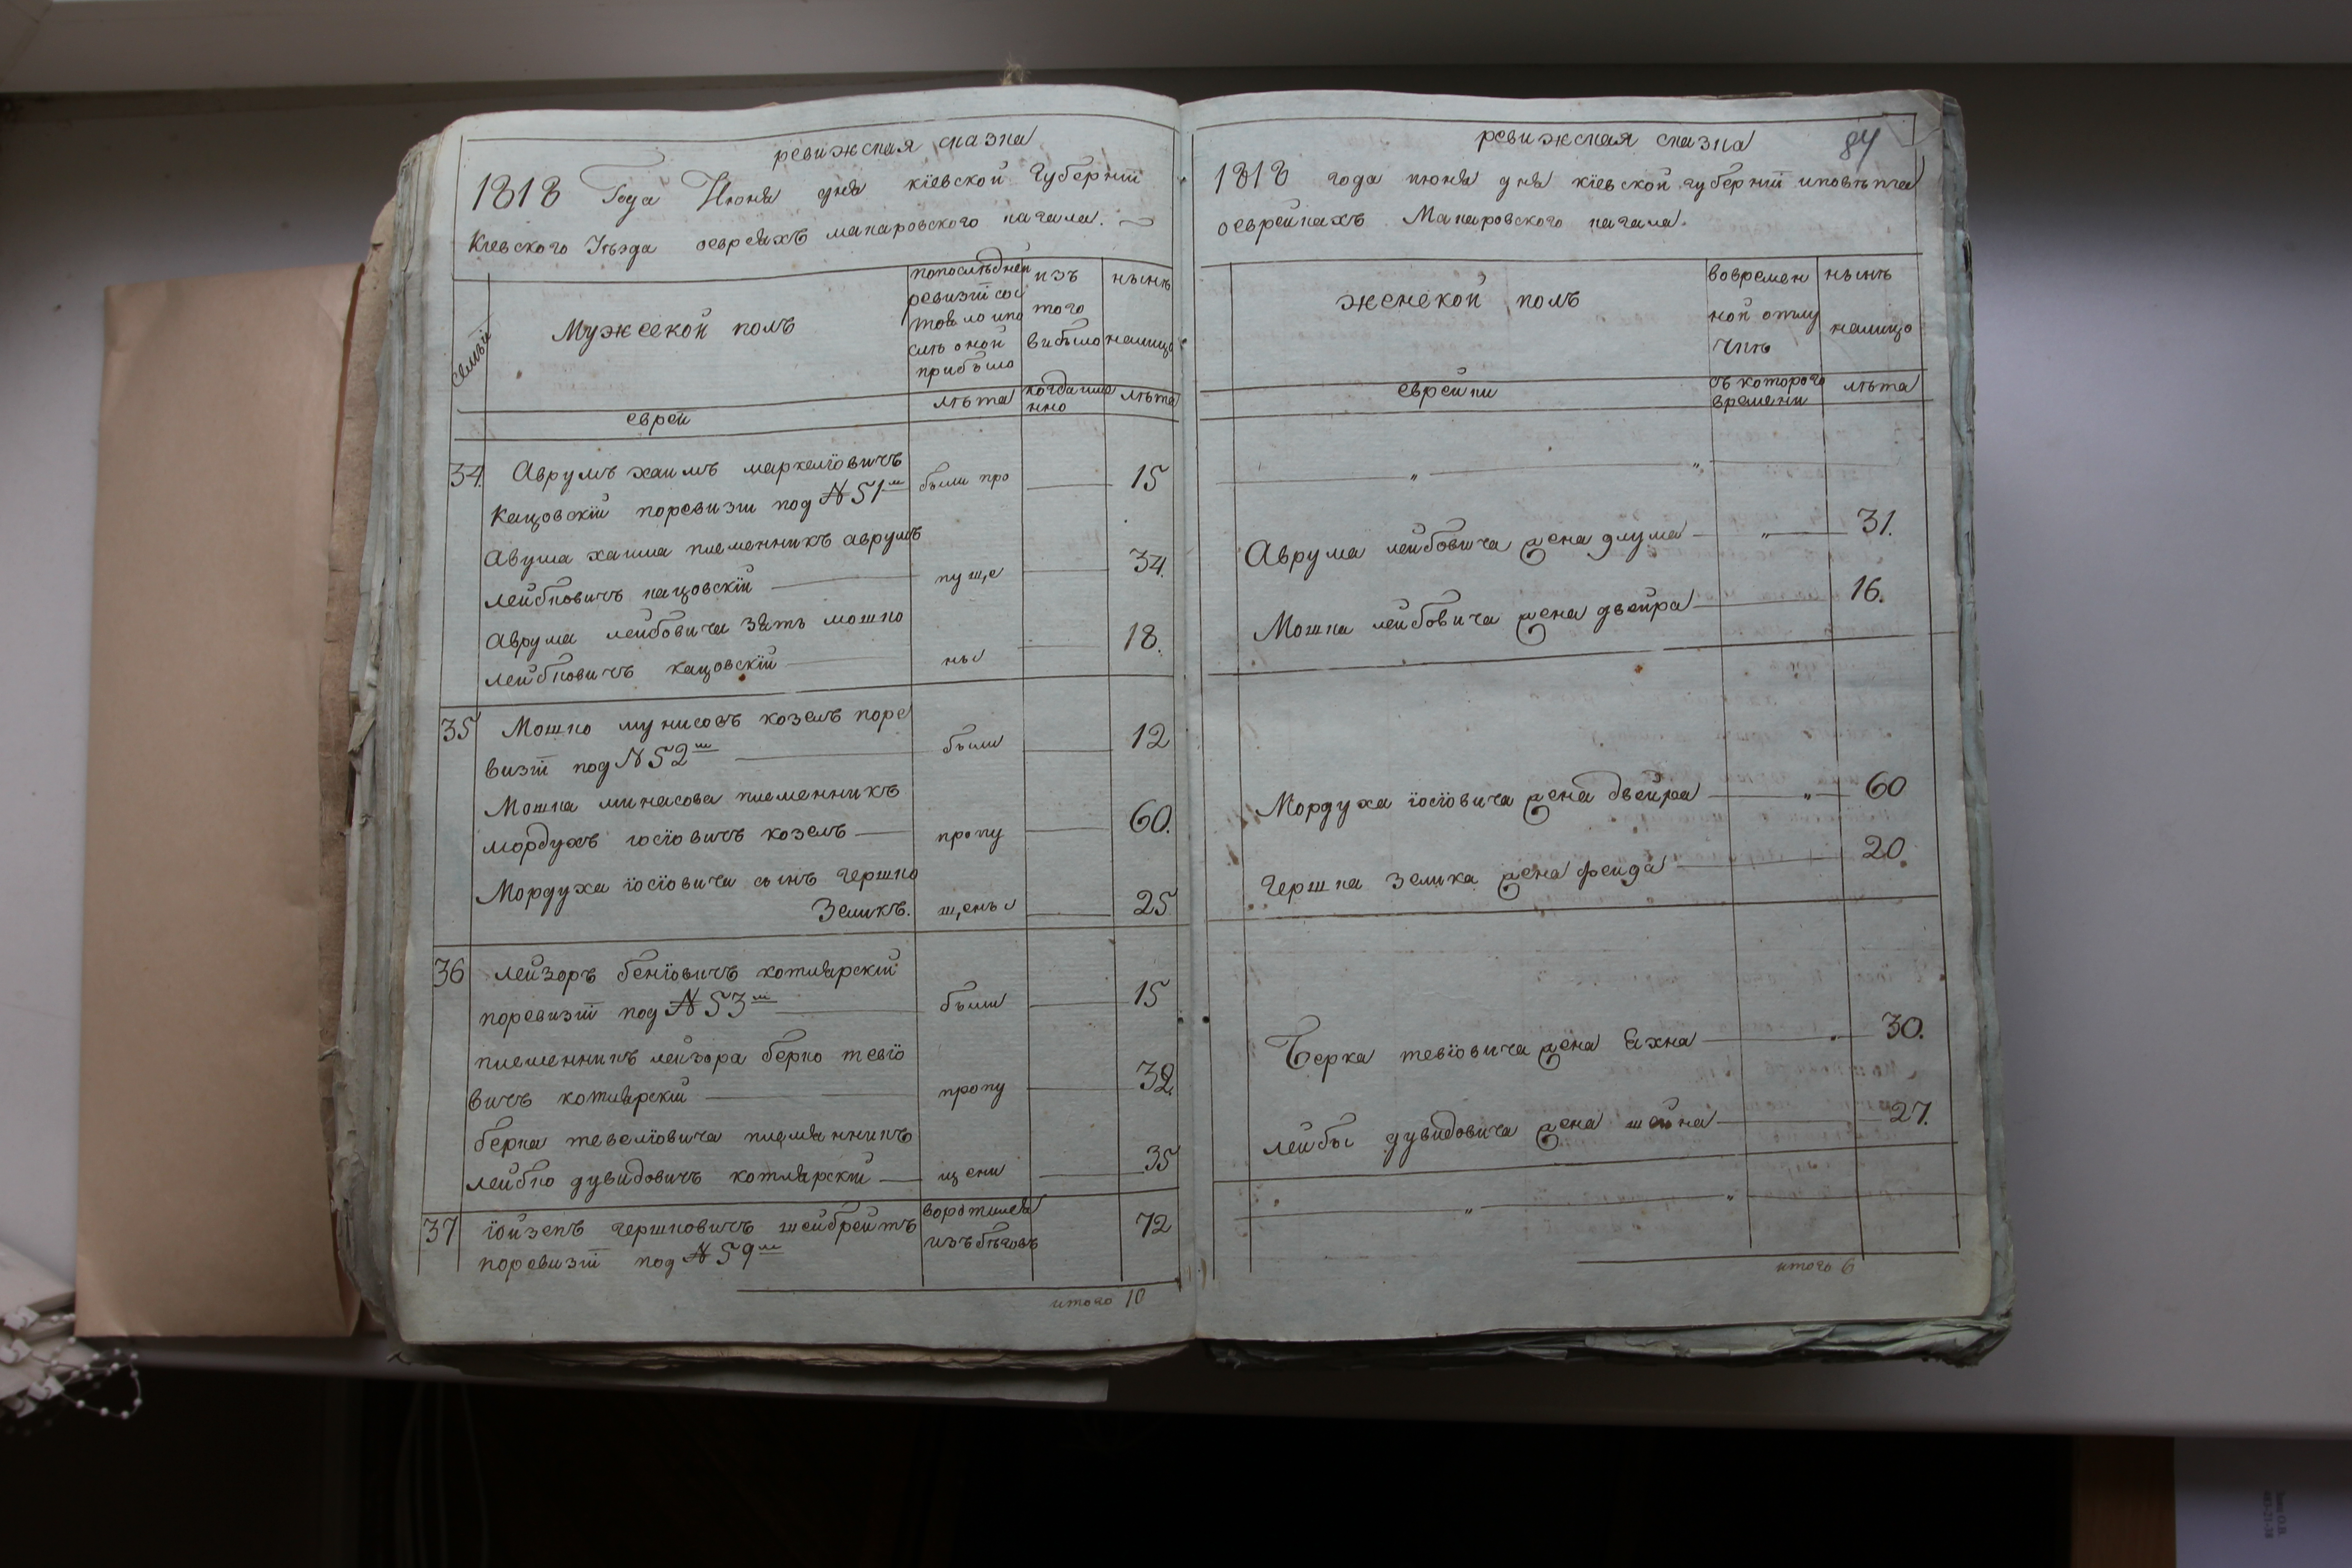 ревижская сказка
1818 Года Июня дня кіевской губерніи
Кіевского Уѣзда оевреяхъ макаровского кагала.
семьи
Мужескои полъ
попослѣдней
ревизіи сос
тояло ипо
слѣ оной
прибыло
изъ
того
выбыло
нынѣ
налицо
еврей
лѣта
когда име
нно
лѣта
34. Аврумъ хаимъ маркеліовичъ
Кацовскій поревизіи под № 51м были про 15
Авума хаима племенникъ аврумъ
лейбковичъ кацовскій пуще 34.
Аврума лейбовича зять мошко
лейбковичъ кацовскій ны 18.
35 Мошко мунисовъ козелъ поре
визіи под № 52м были 12
Мошка минасова племенникъ
мордухъ іосіовичъ козелъ пропу 60.
Мордуха іосіовича сынъ гершко
Зеликъ. щены 25
36 лейзоръ беніовичъ котлярскій
поревизіи под № 53м были 15
племенникъ лейзора берко тевіо
вичъ котлярскій пропу 32.
берка тевеліовича племянникъ
лейбко дувидовичъ котлярскій щени 35
37 іойзепъ гершковичъ шейбрейтъ воротился
поревизіи под № 59м изъ бѣговъ 72
итого 10
84
ревижская сказка
1818 года июня дня кіевской губерніи иповѣта
оеврейкахъ Макаровского кагала.
женской полъ
вовремен
ной отлу
чкѣ
нынѣ
налицо
еврейки
съ которого
времени
лѣта
Аврума лейбовича жена длума 31.
Мошка лейбовича жена двейра 16.
Мордуха іосіовича жена двейра 60
гершка зелика жена фейда 20.
Берка тевіовича жена Ехна 30.
лейбы дувидовича жена шейна 27.
итого 6